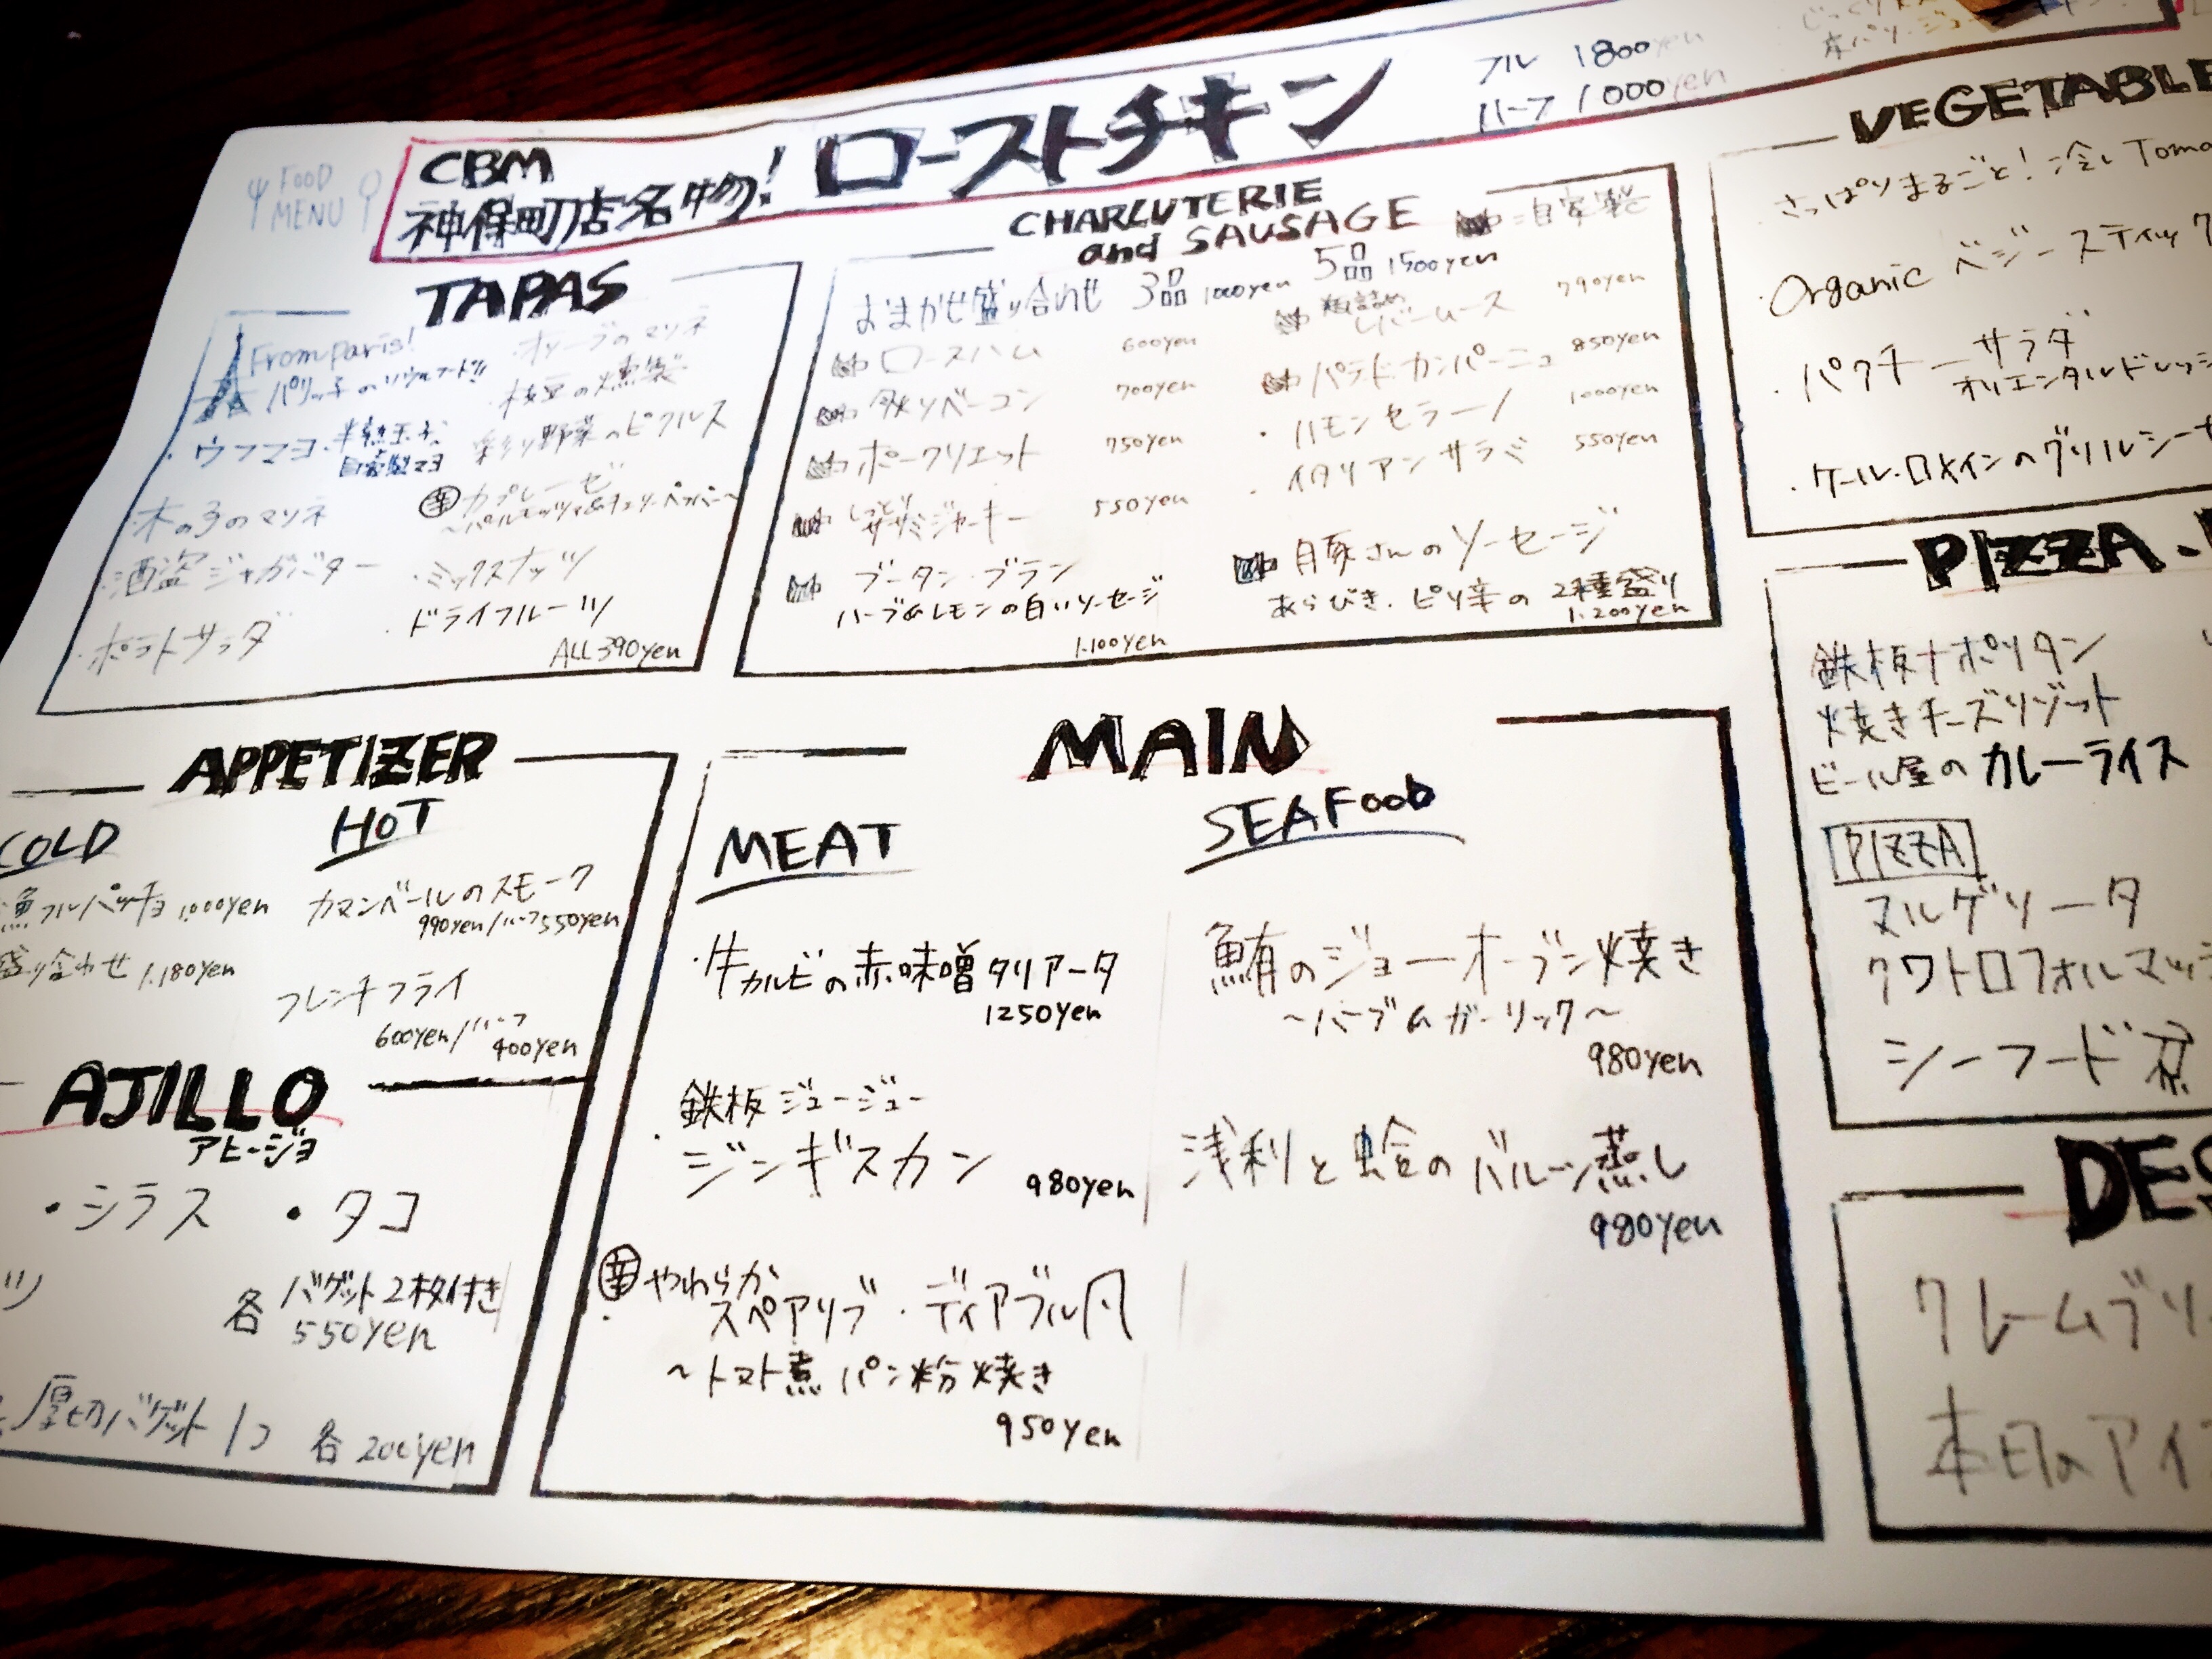 FOOD
MENU
CBM
神保町店名物!
ローストチキン
フル 1800yen
ハーフ 1000yen
TAPAS
From paris!
パリッ子のソウルフード!!
・ウフマヨ・半熟玉子、
自家製マヨ
・木の子のマリネ
・酒盗ジャガバター
・ポテトサラダ
・オリーブのマリネ
・枝豆の燻製
・彩り野菜のピクルス
辛 カプレーゼ
・ミックスナッツ
・ドライフルーツ
ALL 390yen
CHARCUTERIE
and SAUSAGE
=自家製
おまかせ盛り合わせ 3品 1000yen 5品 1500yen
ロースハム 600yen
炙りベーコン 700yen
ポークリエット 750yen
しっとり
ササミジャーキー 550yen
ブータン・ブラン
ハーブ&レモンの白いソーセージ
1.100yen
瓶詰め
レバームース 790yen
パテ・ド・カンパーニュ 850yen
・ハモンセラーノ 1000yen
・イタリアンサラミ 550yen
月豚さんのソーセージ
あらびき・ピリ辛の 2種盛り
1.200yen
VEGETABLE
さっぱりまるごと!冷し
・Organic ベジースティック
・パクチーサラダ
オリエンタルドレッシ
・ケール・ロメインのグリルシーザ
APPETIZER
COLD
1,000yen
盛り合わせ 1.180yen
HOT
カマンベールのスモーク
990yen/ハーフ550yen
フレンチフライ
600yen/ハーフ
400yen
AJILLO
アヒージョ
・シラス ・タコ
ツ
各 バゲット2枚付き
550yen
厚切バゲット1コ 各 200yen
MAIN
MEAT
・牛カルビの赤味噌タリアータ
1250yen
鉄板ジュージュー
・ジンギスカン 980yen
辛 やわらか
・スペアリブ・ディアブル風
~トマト煮パン粉焼き
950yen
SEAFOOD
鮪のジョーオーブン焼き
~ハーブ&ガーリック~
980yen
浅利と蛤のバルーン蒸し
980yen
PIZZA
鉄板ナポリタン
焼きチーズリゾット
ビール屋のカレーライス
PIZZA
マルゲリータ
クワトロフォルマッジ
シーフード
DES
クレームブリ
本日のアイ